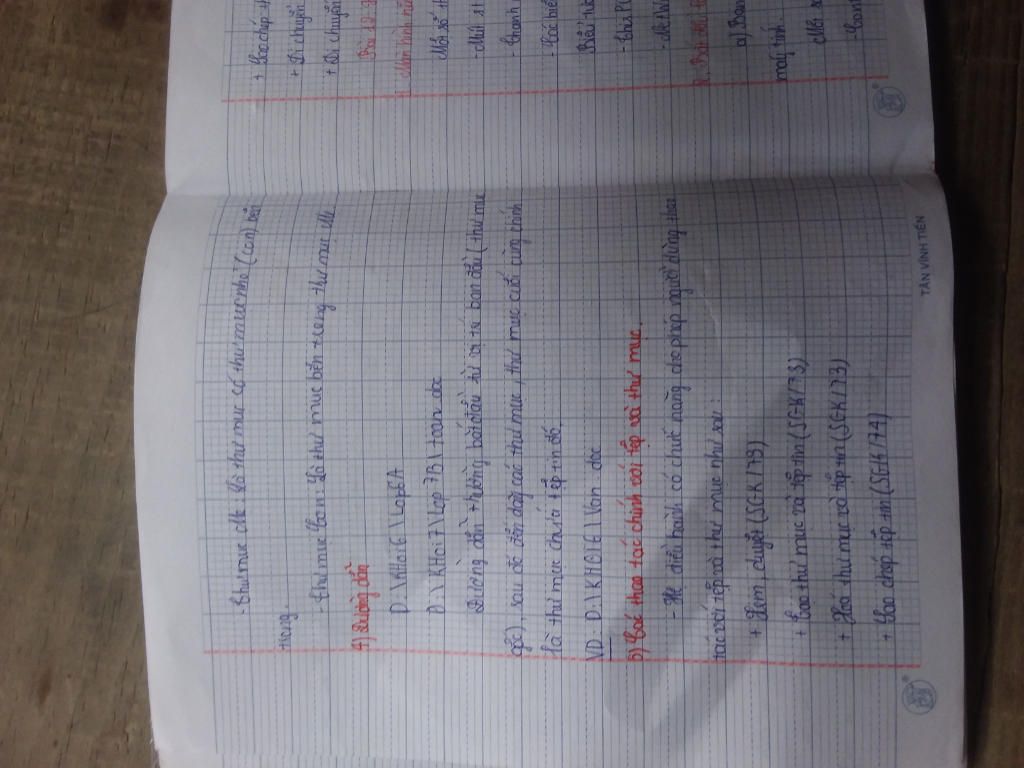 - Thư mục Mẹ là thư mục có thư mục nhỏ (con) bên
trong.
- Thư mục con: là thư mục bên trong thư mục mẹ
4) Đường dẫn
D:\KHOI6\Lop6A
D:\KHOI7\Lop 7B\toan.doc
Đường dẫn thường bắt đầu từ vị trí ban đầu (thư mục
gốc), sau đó đến dãy các thư mục, thư mục cuối cùng chính
là thư mục chứa tập tin đó.
VD: D:\KHOI6\Van.doc
5) Các thao tác chính với tệp và thư mục.
- Hệ điều hành có chức năng cho phép người dùng thao
tác với tệp và thư mục như sau:
+ Xem, duyệt (SGK/73)
+ Tạo thư mục và tập tin (SGK/73)
+ Xoá thư mục và tập tin (SGK/73)
+ Sao chép tập tin (SGK/74)
TÂN VĨNH TIẾN
+ Sao chép
+ Di chuyển
+ Di chuyển
Màn hình
- Một
- Thanh
Biểu
a) Ban
máy tính.